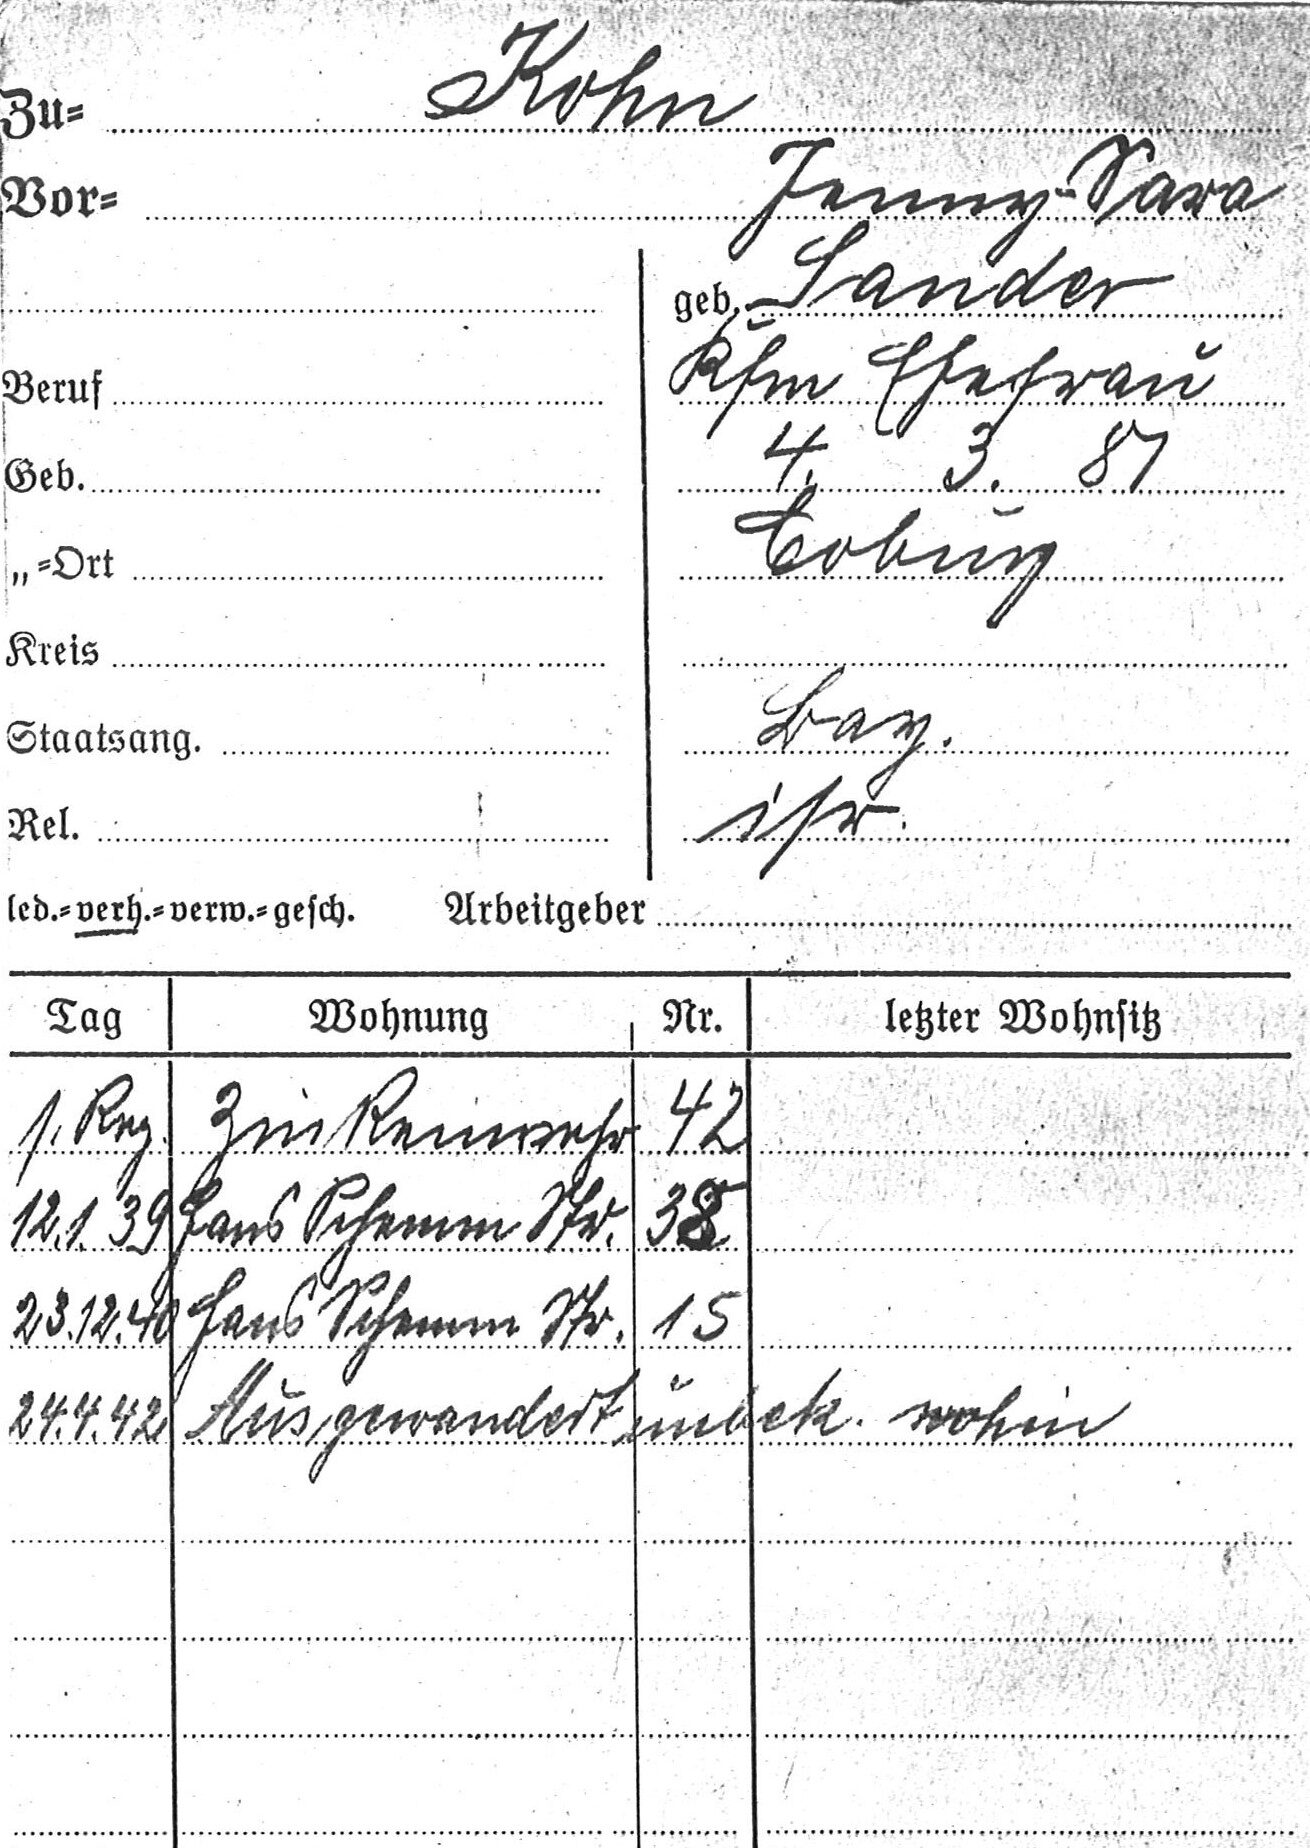 Zu= Kohn
Vor= Jenny-Sara
geb. Sander
Beruf Kfm Ehefrau
Geb. 4. 3. 87
„=Ort Coburg
Kreis
Staatsang. Bay.
Rel. isr.
led.=verh.=verw.=gesch. Arbeitgeber
Tag Wohnung Nr. letzter Wohnsitz
s. Reg. Zinkenwehr 42
12.1.39 Hans Schemm Str. 38
23.12.40 Hans Schemm Str. 15
24.4.42 Ausgewandert unbek. wohin